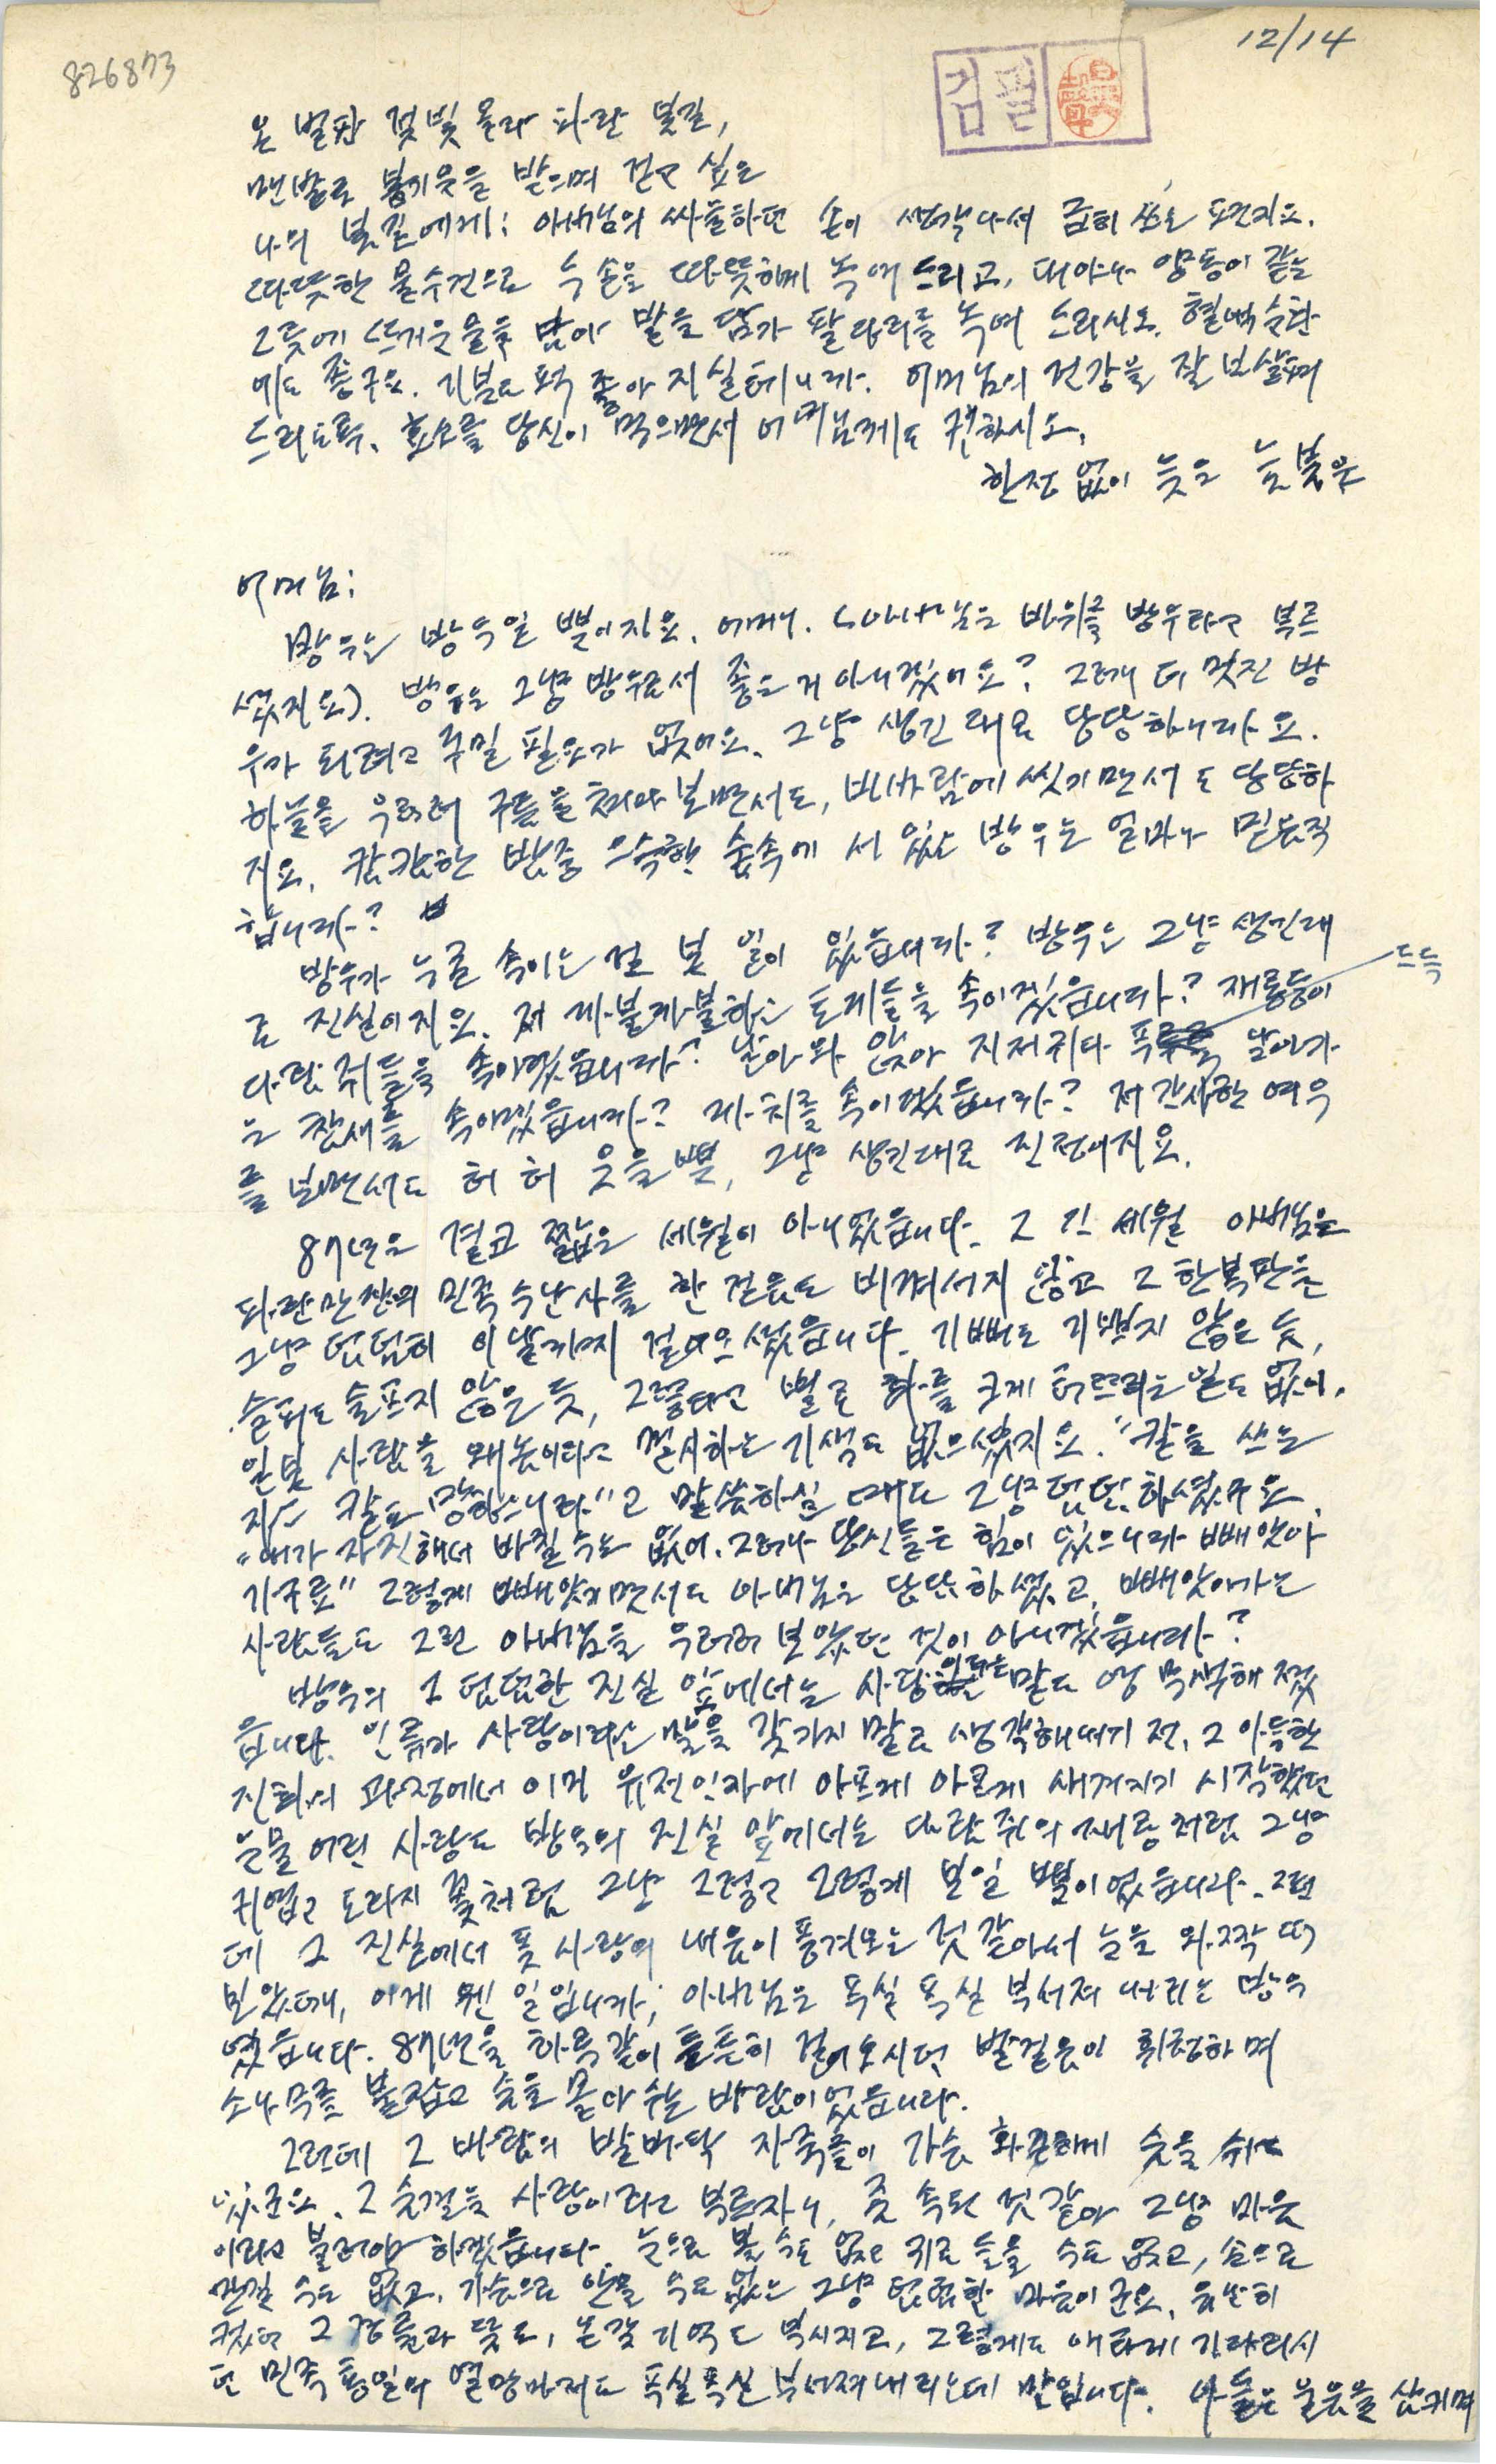 826873
12/14
검필
온 벌판 젖빛 몰라 파란 봄길,
맨발로 봄기운을 밟으며 걷고 싶은
나의 봄길에게: 아버님의 싸늘하던 손이 생각나서 급히 쓰는 포건지요.
따뜻한 물수건으로 두 손을 따뜻하게 녹여 드리고, 대야나 양동이 같은
그릇에 뜨거운 물을 담아 발을 담가 팔다리를 녹여 드리시오. 혈액순환
에도 좋구요. 기분도 퍽 좋아지실테니까. 어머님의 건강을 잘 보살펴
드리도록. 효소를 당신이 먹으면서 어머님께도 권하시오.
한정 없이 늦은 늦봄은
어머님:
방우는 방우일 뿐이지요. 어머니. (아버님은 바위를 방우라고 부르
셨지요). 방우는 그냥 방우로서 좋은 거 아니겠어요? 그러니 더 멋진 방
우가 되려고 꾸밀 필요가 없어요. 그냥 생긴 대로 당당하니까요.
하늘을 우러러 구름을 쳐다보면서도, 비바람에 씻기면서도 당당하
지요. 캄캄한 밤중 으슥한 숲속에 서 있는 방우는 얼마나 믿음직
합니까?
방우가 누굴 속이는 걸 본 일이 있습니까? 방우는 그냥 생긴대
로 진실이지요. 저 까불까불하는 토끼들을 속이겠습니까? 재롱둥이
다람쥐들을 속이겠습니까? 날아와 앉아 지저귀다 포드득 날아가
는 참새를 속이겠습니까? 까치를 속이겠습니까? 저 간사한 여우
를 보면서도 허 허 웃을 뿐, 그냥 생긴대로 진정이지요.
87년은 결코 짧은 세월이 아니었습니다. 그 긴 세월 아버님은
파란만장의 민족 수난사를 한 걸음도 비켜서지 않고 그 한복판을
그냥 덤덤히 이날까지 걸어오셨습니다. 기뻐도 기쁘지 않은 듯,
슬퍼도 슬프지 않은 듯, 그렇다고 별로 화를 크게 터뜨리는 일도 없이.
일본 사람을 왜놈이라고 멸시하는 기색도 없으셨지요. "칼을 쓰는
자는 칼로 망하느니라"고 말씀하실 때도 그냥 덤덤하셨구요.
"내가 자진해서 바칠 수는 없어. 그러나 당신들은 힘이 있으니까 빼앗아
가구료" 그렇게 빼앗기면서도 아버님은 당당하셨고, 빼앗아가는
사람들도 그런 아버님을 우러러 보았던 것이 아니겠습니까?
방우의 그 덤덤한 진실 앞에서는 사랑이라는 말도 영 무색해졌
습니다. 인류가 사랑이라는 말을 갖가지 말로 생각해내기 전, 그 아득한
진화의 과정에서 이미 유전인자에 아프게 아프게 새겨지기 시작했던
눈물어린 사랑도 방우의 진실 앞에서는 다람쥐의 재롱처럼 그냥
귀엽고 도라지 꽃처럼 그냥 그렇고 그렇게 보일 뿐이었습니다. 그런
데 그 진실에서 풋사랑의 내음이 풍겨오는 것 같아서 눈을 와짝 떠
보았더니, 이게 웬 일입니까, 아버님은 푹실 푹실 부서져 내리는 방우
였습니다. 87년을 하루같이 튼튼히 걸어오시던 발걸음이 휘청하며
소나무를 붙잡고 숨을 몰아 쉬는 바람이었습니다.
그런데 그 바람의 발바닥 자죽들이 가슴 화끈하게 숨을 쉬고
있군요. 그 숨결을 사랑이라고 부르자니, 좀 속된 것 같아 그냥 마음
이라고 불러야 하겠습니다. 눈으로 볼 수도 없고 귀로 들을 수도 없고, 손으로
만질 수도 없고, 가슴으로 안을 수도 없는 그냥 덤덤한 마음이군요. 유난히
컸던 그 귀와 달도, 온갖 기억도 부서지고, 그렇게도 애타게 기다리시
던 민족 통일의 열망마저도 푹실푹실 부서져내리는데 말입니다. 아들은 울음을 삼키며